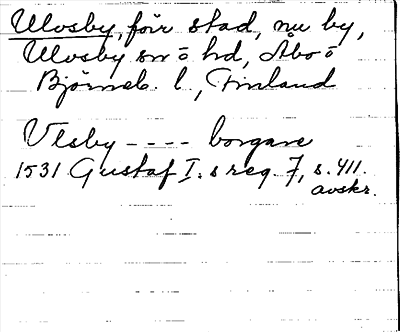 Ulvsby, förr stad, nu by,
Ulvsby sn o hd, Åbo o
Björneb. l, Finland
Vlsby ---- borgare
1531 Gustaf I.s reg. 7, s. 411.
avskr.